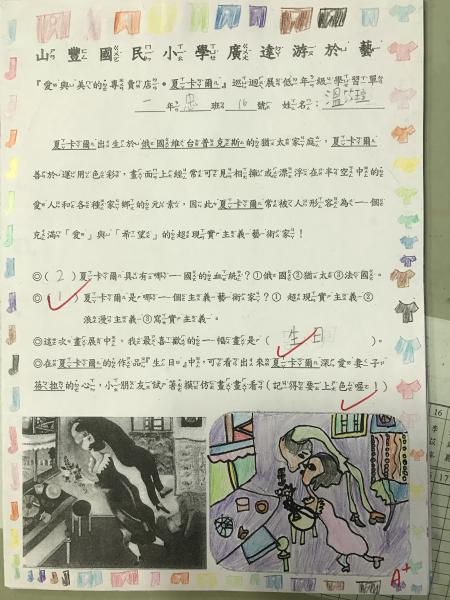 山豐國民小學廣達游於藝
『愛與美的專賣店•夏卡爾』巡迴展低年級學習單
一年忠班16號 姓名：溫
夏卡爾出生於俄國維台普克斯的猶太家庭，
善於運用色彩，畫面上經常可見相擁或漂浮在半空中的
愛人和各種家鄉的元素，因此夏卡爾常被人形容為一個
充滿「愛」與「希望」的超現實主義藝術家！
◎(2)夏卡爾具有哪一國的血統？①俄國②猶太③法國。
◎(1)夏卡爾是哪一個主義藝術家？①超現實主義②
浪漫主義③寫實主義。
◎這次畫展中，我最喜歡的一幅畫是(生日)。
◎在夏卡爾的作品「生日」中，可看出來夏卡爾深愛妻子
蓓拉的心，小朋友試著模仿畫畫看(記得要上色喔！)
A+
16
17